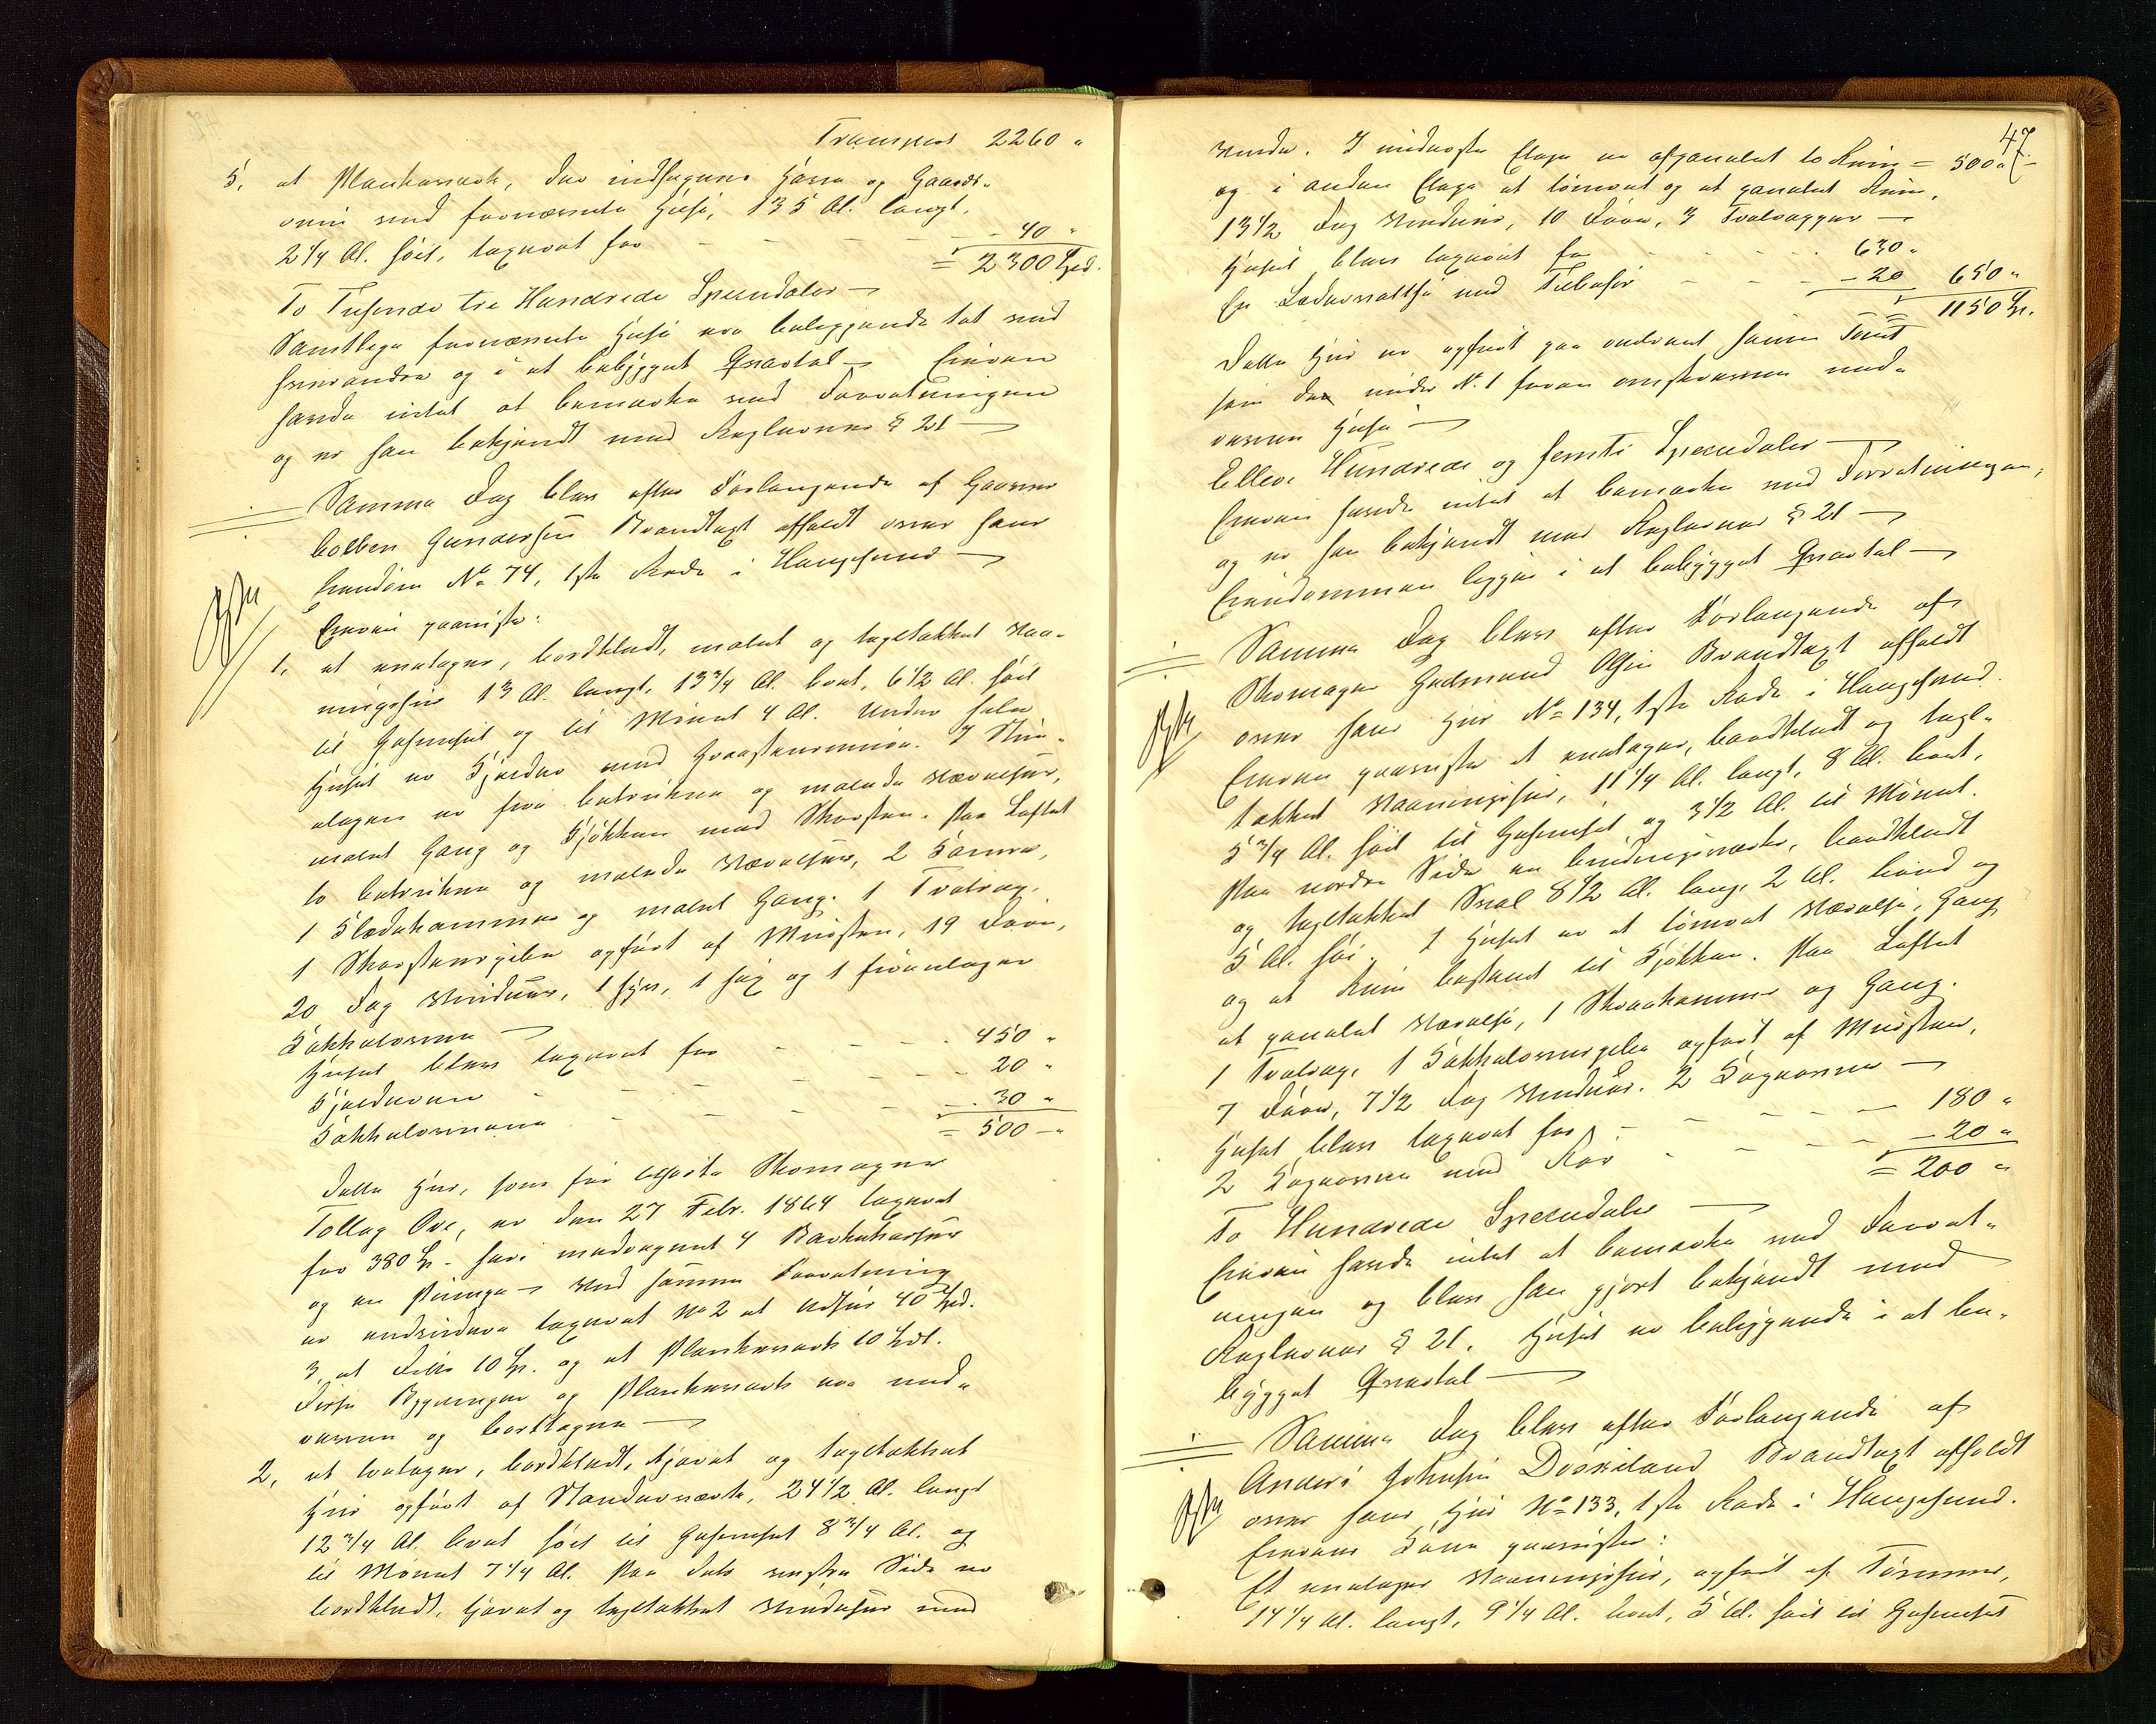 Transport 2260 "
5, et Plankeværk, der indhegner Have og Gaards-
rum ved fornævnte Huse, 135 Al. langt,
2 1/4 Al. høit, taxeret for - - - 40 "
= 2300 Spd.
To Tusende tre Hundrede Speciedaler —
Samtlige fornævnte Huse ere beliggende tæt ved
hverandre og i et bebygget Qvartal — Eieren
havde intet at bemærke ved Forretningen
og er han bekjendt med Reglernes § 21 —
Samme Dag blev efter Forlangende af Garver
Colben Gundersen Brandtaxt afholdt over hans
Eiendom No 74, 1ste Rode i Haugesund —
Eieren paaviste:
1, et enetages, bordklædt, malet og tegltækket Vaa-
ningshus 13 Al. langt, 13 3/4 Al. bredt, 6 1/2 Al. høit
til Gesimset og til Mønet 4 Al. Under hele
Huset er Kjelder med Graastensmure. I Stue-
etagen er fire betrukne og malede Værelser,
malet Gang og Kjøkken med Skorsten. Paa Loftet
to betrukne og malede Værelser, 2 Kamre,
1 Klædekammer og malet Gang. 1 Trætrap.
1 Skorstenspibe opført af Mursten, 19 Døre,
20 Fag Vinduer, 1 fyr, 1 sex og 1 fireetages
Kakkelovne —
Huset blev taxeret for - - - 450 "
Kjelderen - - - 20 "
Kakkelovnene - - - 30 "
= 500 — "
Dette Hus, som før tilhørte Skomager
Tollag Ove, er den 27 Febr. 1864 taxeret
for 380 Sp. - heri medregnet 4 Barkekarhus
og en Pumpe — Ved samme Forretning
er endvidere taxeret No 2 et Udhus 40 Spd.
3, et Ditto 10 Sp. og et Plankeværk 10 Spdl.
Disse Bygninger og Plankeværk ere ned-
revne og borttagne —
2, et toetages, bordklædt, tjæret og tegltækket
Hus opført af Standerværk, 24 1/2 Al. langt
12 3/4 Al. bredt høit til Gesimset 8 3/4 Al. og
til Mønet 7 1/4 Al. Paa dets vestre Side er
bordklædt, tjæret og tegltækket Vindehus med
47
Vinde. I nederste Etage er afpanelet to Rum = 500 "
og i anden Etage et tømret og et panelet Rum,
13 1/2 Fag Vinduer, 10 Døre, 3 Trætrapper —
Huset blev taxeret for - - - 630 "
En Ledervaltse med Tilbehør - - - 20 650 "
= 1150 Sp.
Dette Hus er opført paa endvant samme Tomt
som den under No. 1 foran omskrevne ned-
revne Huse —
Elleve Hundrede og femti Speciedaler —
Eieren havde intet at bemærke ved Forretningen,
og er han bekjendt med Reglernes § 21 —
Eiendommen ligger i et bebygget Qvartal —
Samme Dag blev efter Forlangende af
Skomager Gudmund Olsen Brandtaxt afholdt
over hans Hus No 134, 1ste Rode i Haugesund.
Eieren paaviste et enetages, bordklædt og tegl-
tækket Vaaningshus, 11 1/4 Al. langt, 8 Al. bredt,
5 3/4 Al. høit til Gesimset og 3 1/2 Al. til Mønet.
Paa nordre Side en bindingsværks, bordklædt
og tegltækket Sval 8 1/2 Al. lang, 2 Al. bred og
5 Al. høi. I Huset er et tømret Værelse, Gang
og et Rum bestemt til Kjøkken. Paa Loftet
et panelet Værelse, 1 Skraakammer og Gang.
1 Trætrap, 1 Kakkelovnspibe opført af Mursten,
7 Døre, 7 1/2 Fag Vinduer. 2 Kogeovne —
Huset blev taxeret for - - - 180 "
2 Kogeovne med Rør - - - 20 "
= 200 "
To Hundrede Speciedaler —
Eieren havde intet at bemærke ved Forret-
ningen og blev han gjort bekjendt med
Reglernes § 21. Huset er beliggende i et be-
bygget Qvartal —
Samme Dag blev efter Forlangende af
Anders Johnsen Døskeland Brandtaxt afholdt
over hans Hus No 133, 1ste Rode i Haugesund.
Eierens Kone paaviste:
Et enetages Vaaningshus, opført af Tømmer,
14 1/4 Al. langt, 9 1/4 Al. bredt, 5 Al. høit til Gesimset